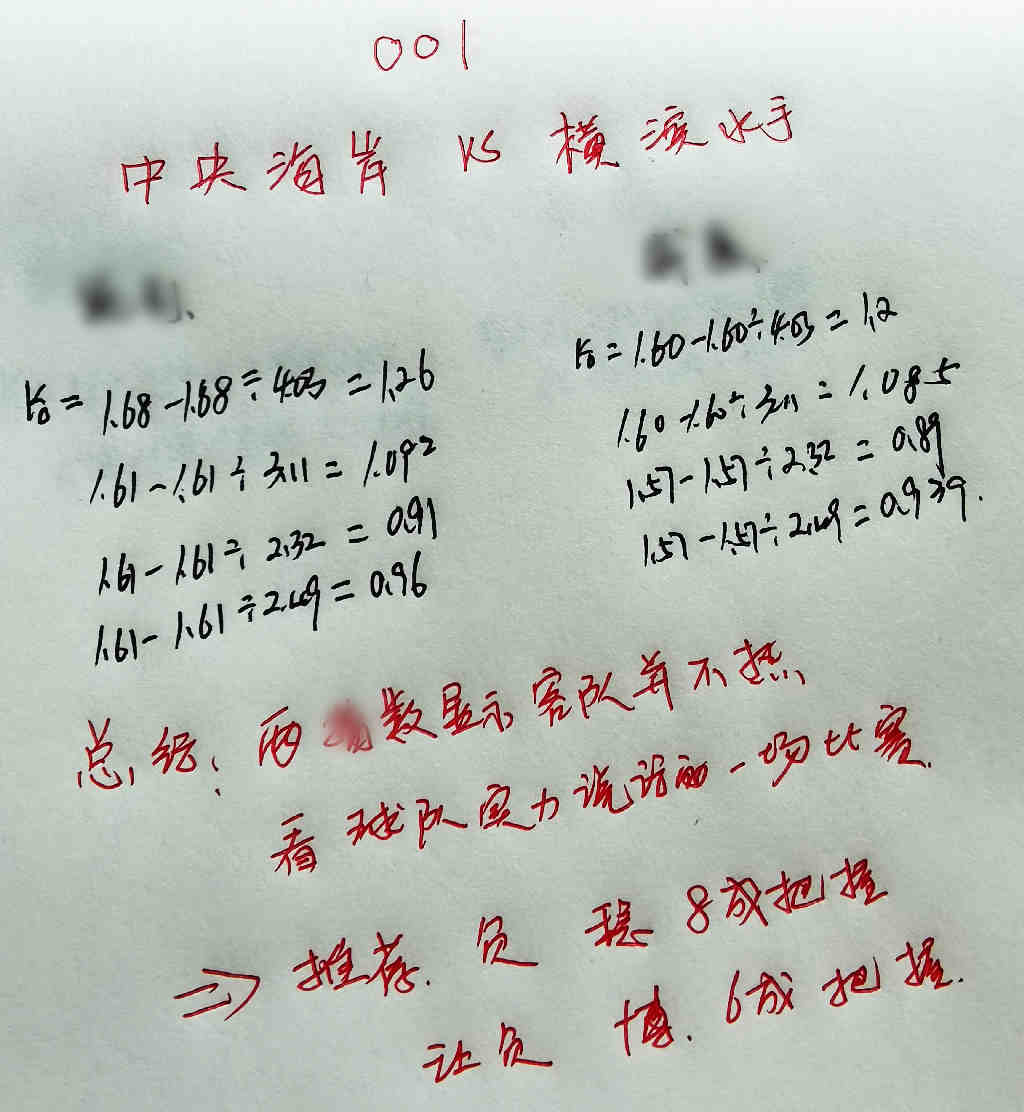 001
中央海岸 VS 横滨水手
K0 = 1.68-1.68÷4.03 = 1.26
1.61-1.61÷3.11 = 1.092
1.61-1.61÷2.32 = 0.91
1.61-1.61÷2.49 = 0.96
K0 = 1.60-1.60÷4.03 = 1.2
1.60-1.60÷3.11 = 1.085
1.57-1.57÷2.32 = 0.89
1.57-1.57÷2.49 = 0.939.
总结: 两数显示客队并不热
看球队实力说话的一场比赛.
⇒ 推荐. 负 稳 8成把握
让负 博. 6成把握.